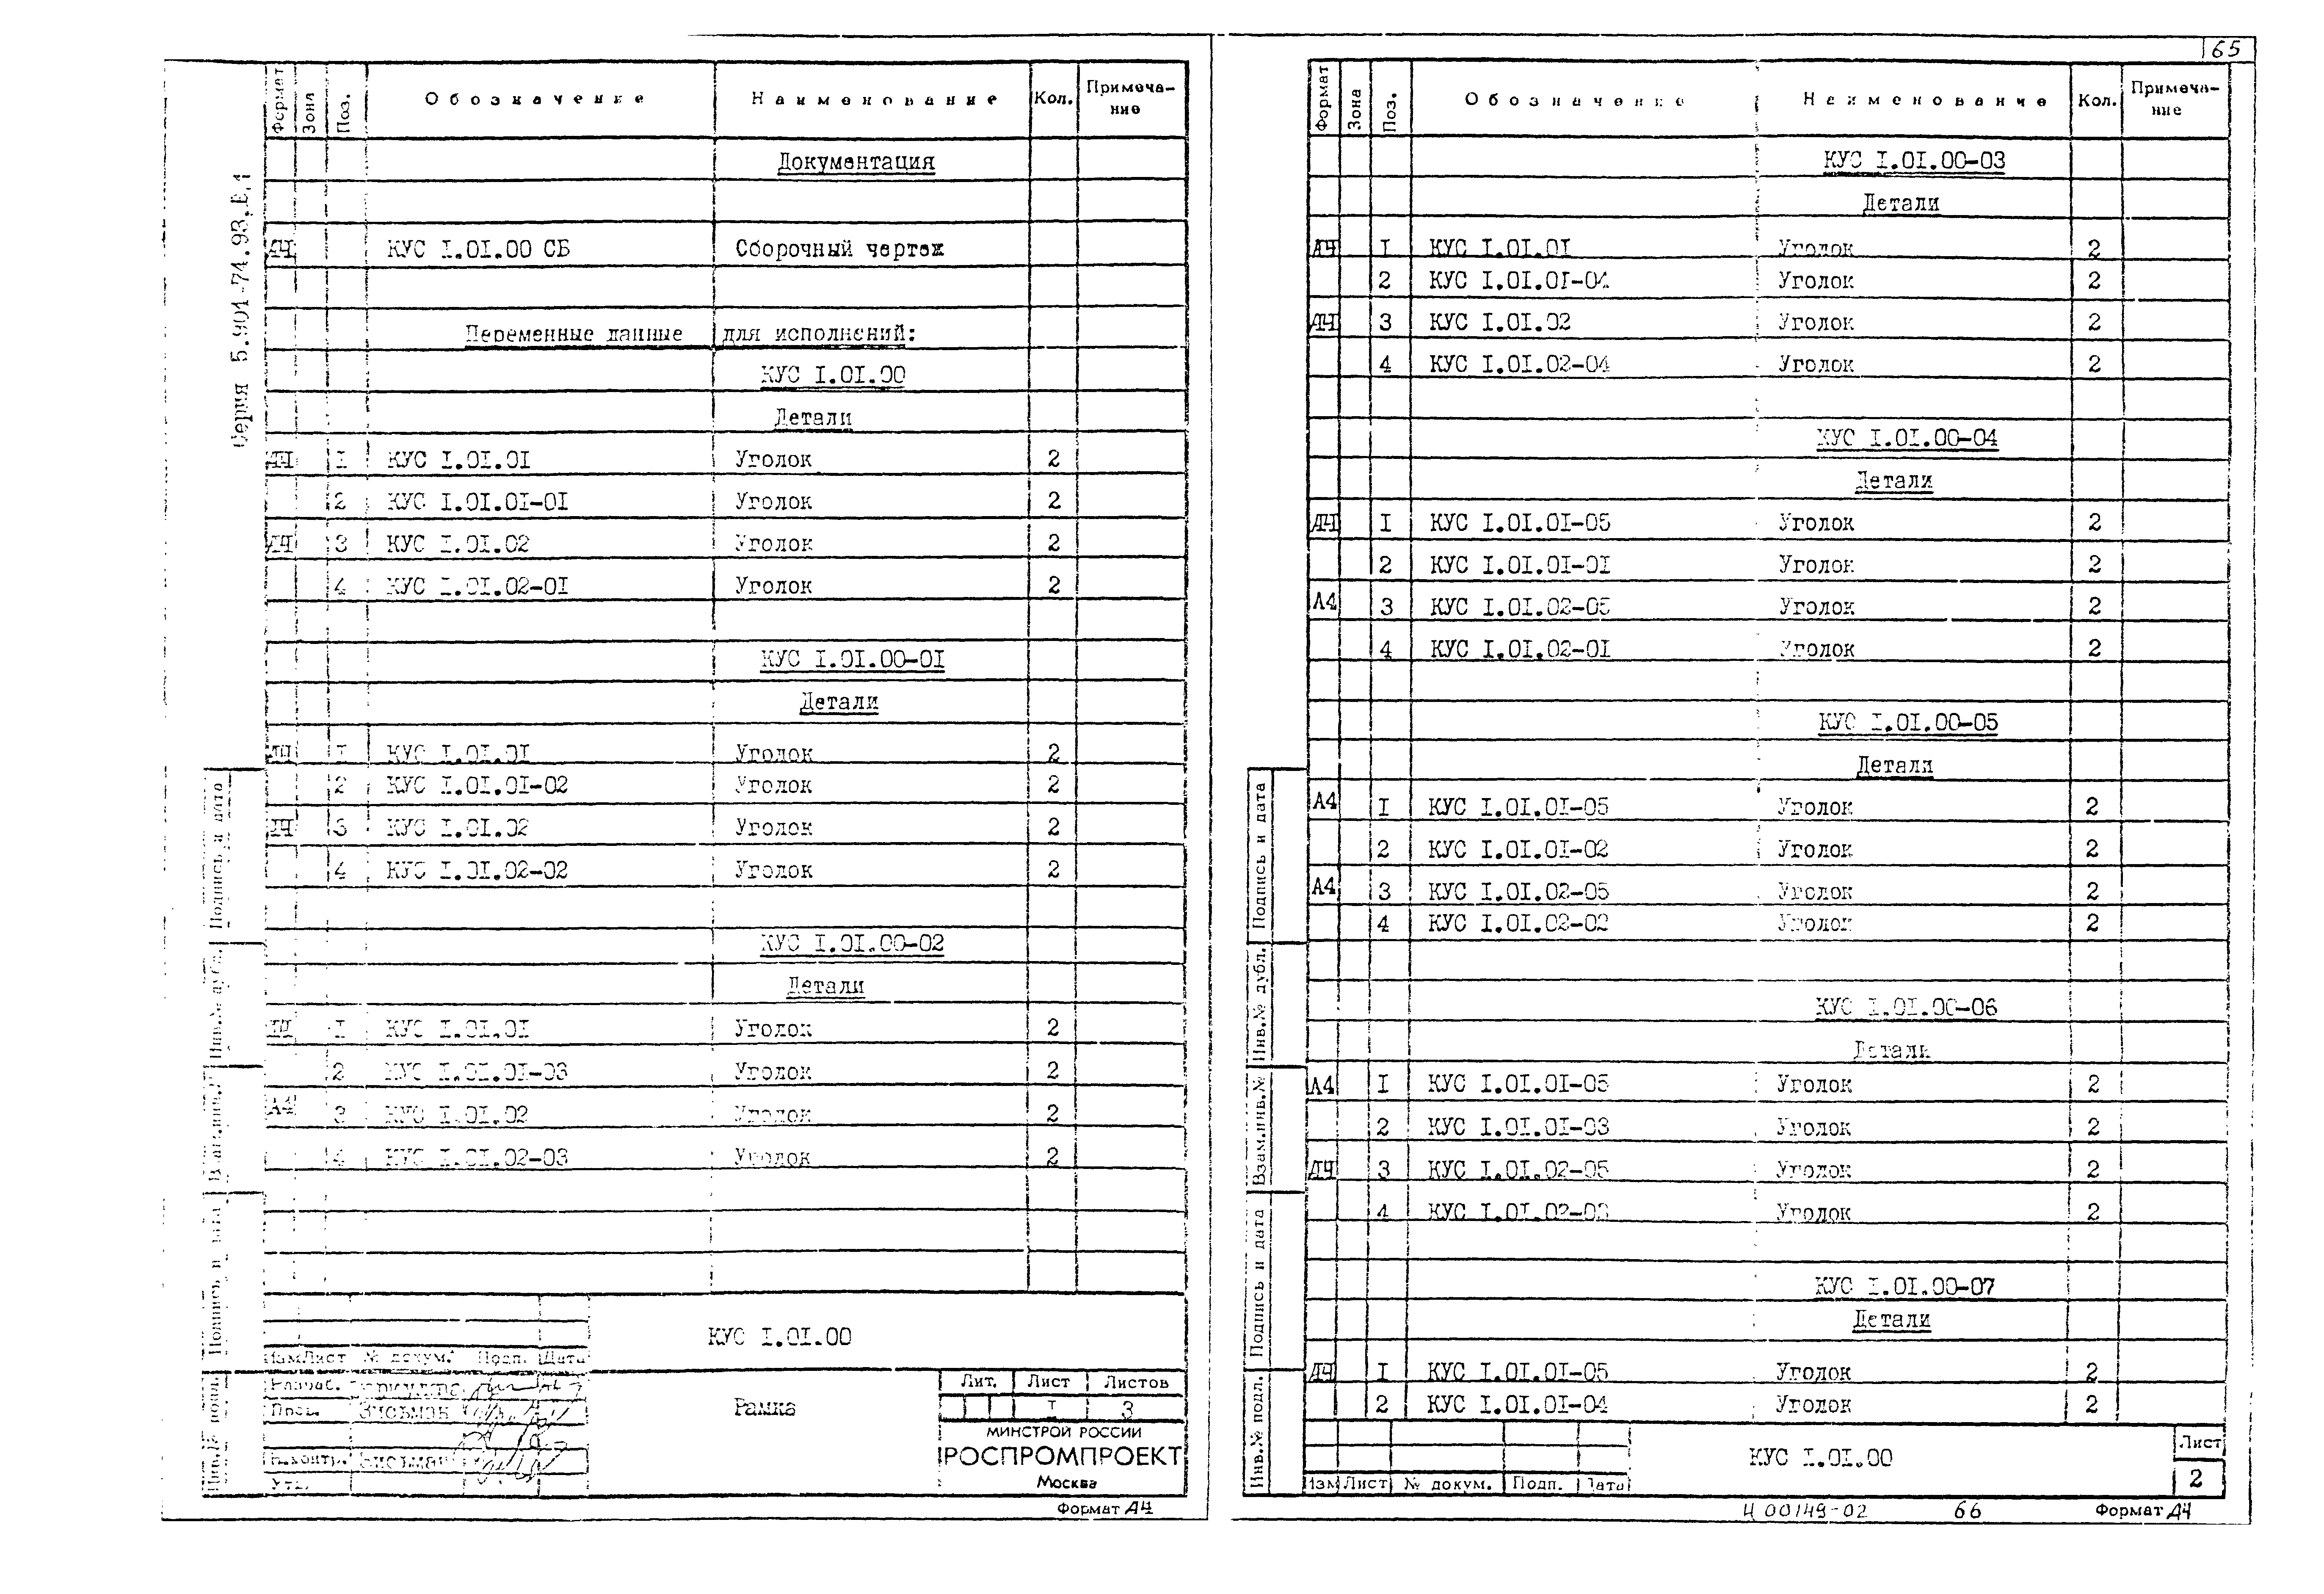 65
Серия 5.904-74.93, В.1
Формат Зона Поз. Обозначение Наименование Кол. Примеча-
ние
Документация
А4 КУС I.01.00 СБ Сборочный чертеж
Переменные данные для исполнений:
КУС I.01.00
Детали
А4 I КУС I.01.01 Уголок 2
2 КУС I.01.01-01 Уголок 2
А4 3 КУС I.01.02 Уголок 2
4 КУС I.01.02-01 Уголок 2
КУС I.01.00-01
Детали
А4 I КУС I.01.01 Уголок 2
2 КУС I.01.01-02 Уголок 2
А4 3 КУС I.01.02 Уголок 2
4 КУС I.01.02-02 Уголок 2
КУС I.01.00-02
Детали
А4 I КУС I.01.01 Уголок 2
2 КУС I.01.01-03 Уголок 2
А4 3 КУС I.01.02 Уголок 2
4 КУС I.01.02-03 Уголок 2
Подпись и дата
Инв.№ дубл.
Взам.инв.№
Подпись и дата
Инв.№ подл.
КУС I.01.00
Изм Лист № докум. Подп. Дата
Разраб.
Пров. Зисьман
Н.контр. Зисьман
Утв.
Рамка
Лит. Лист Листов
I 3
МИНСТРОЙ РОССИИ
РОСПРОМПРОЕКТ
Москва
Формат А4
Формат Зона Поз. Обозначение Наименование Кол. Примеча-
ние
КУС I.01.00-03
Детали
А4 I КУС I.01.01 Уголок 2
2 КУС I.01.01-04 Уголок 2
А4 3 КУС I.01.02 Уголок 2
4 КУС I.01.02-04 Уголок 2
КУС I.01.00-04
Детали
А4 I КУС I.01.01-05 Уголок 2
2 КУС I.01.01-01 Уголок 2
А4 3 КУС I.01.02-05 Уголок 2
4 КУС I.01.02-01 Уголок 2
КУС I.01.00-05
Детали
А4 I КУС I.01.01-05 Уголок 2
2 КУС I.01.01-02 Уголок 2
А4 3 КУС I.01.02-05 Уголок 2
4 КУС I.01.02-02 Уголок 2
КУС I.01.00-06
Детали
А4 I КУС I.01.01-05 Уголок 2
2 КУС I.01.01-03 Уголок 2
А4 3 КУС I.01.02-05 Уголок 2
4 КУС I.01.02-03 Уголок 2
КУС I.01.00-07
Детали
А4 I КУС I.01.01-05 Уголок 2
2 КУС I.01.01-04 Уголок 2
Подпись и дата
Инв.№ дубл.
Взам.инв.№
Подпись и дата
Инв.№ подл.
Изм Лист № докум. Подп. Дата
КУС I.01.00
Лист
2
Ц 00149-02 66 Формат А4